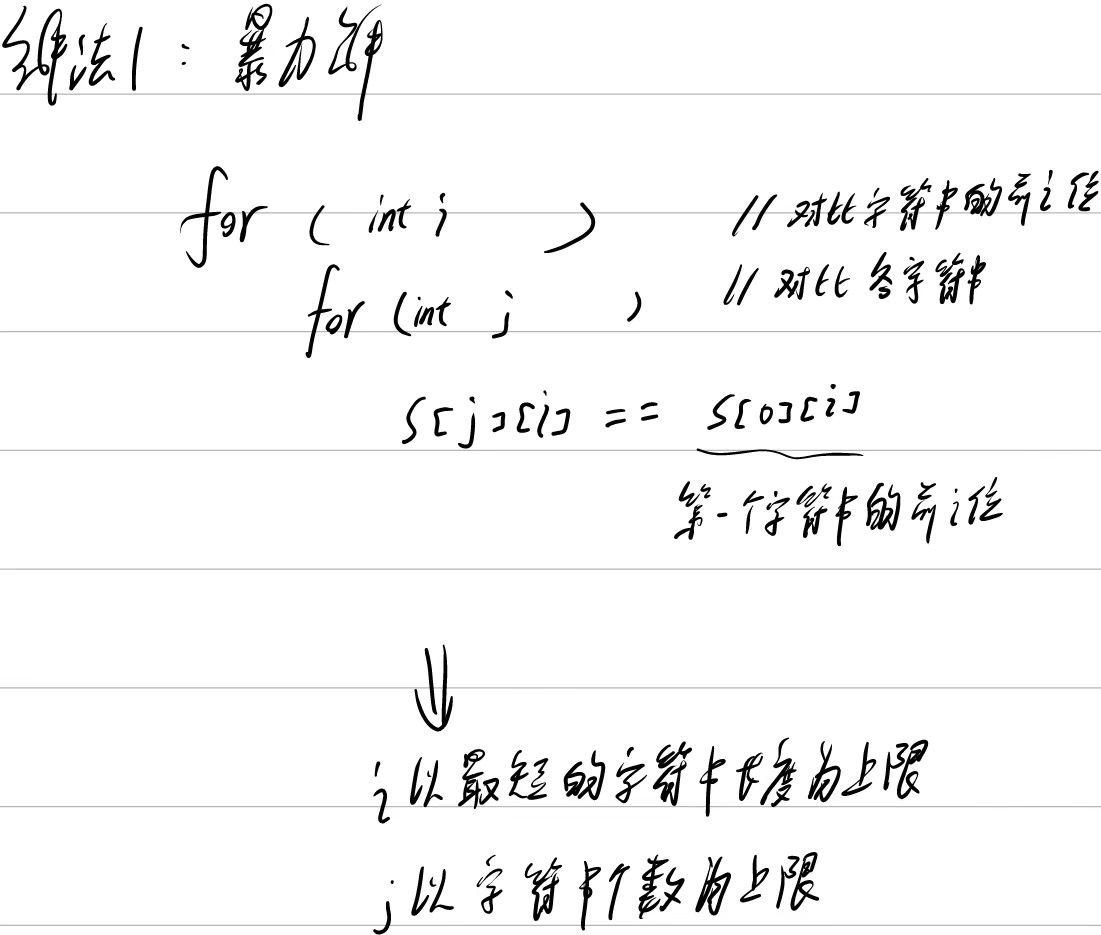 解法1：暴力解
for ( int i ) // 对比字符串的前i位
for (int j ) // 对比各字符串
s[j][i] == s[0][i]
第一个字符串的前i位
⇓
i 以最短的字符串长度为上限
j 以字符串个数为上限